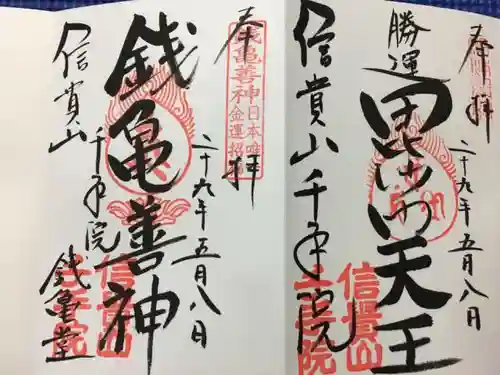 奉拝
勝運
毘沙門天王
二十九年五月八日
信貴山千手院
信貴山
千手院
奉拝
銭亀善神
日本唯一
金運招福
銭亀善神
二十九年五月八日
信貴山
千手院
銭亀堂
信貴山
千手院